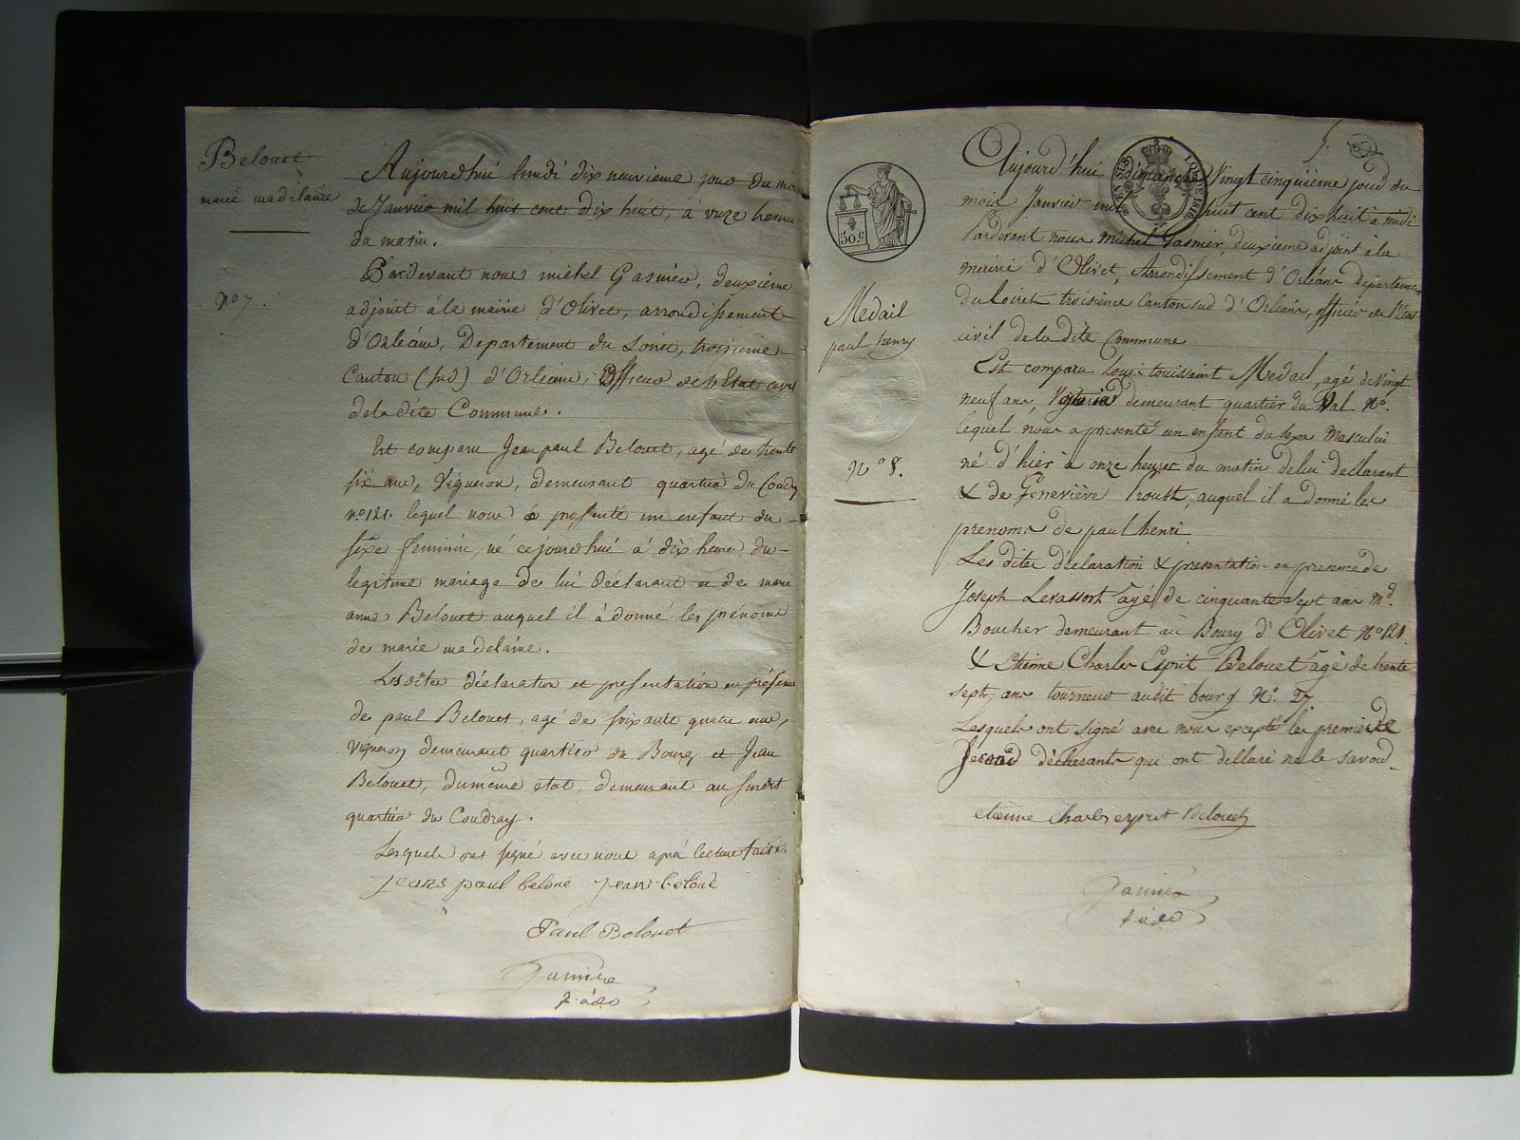 Belouet
marie madelaine
n° 7.
Aujourdhui lundi dix neuvieme jour du mois
de Janvier mil huit cent dix huit, à onze heures
du matin.
Pardevant nous michel Gasnier, deuxième
adjoint à la mairie d'Olivet, arrondissement
d'Orléans, Departement du Loiret, troisieme
Canton (sud) d'Orleans, Officier de l'Etat civil
de la dite Commune.
Est comparu Jean paul Belouet, agé de trente
six ans, Vigneron, demeurant quartier du Coudray
n° 121. lequel nous a presenté un enfant du
sexe feminin, né cejourdhui à dix heures du
legitime mariage de lui déclarant et de marie
anne Belouet auquel il à donné les prénoms
de marie madelaine.
Les dites déclaration et presentation en présence
de paul Belouet, agé de soixante quatre ans,
Vigneron demeurant quartier du Bourg et Jean
Belouet, du même etat, demeurant au susdit
quartier du Coudray.
Lesquels ont signé avec nous après lecture faite.
jean paul beloue jean beloue
Paul Belouet
Gasnier
50 c
Medail
paul henry
N° 8.
5.
Aujourd'hui dimanche Vingt cinquième jour du
mois Janvier mil huit cent dix huit à midi
Pardevant nous Michel Gasnier, deuxieme adjoint à la
mairie d'Olivet, Arrondissement d'Orléans departement
du Loiret troisième Canton sud d'Orléans, officier de l'Etat
civil de la dite Commune
Est comparu Louis toussaint Medail, agé de Vingt
neuf ans, demeurant quartier du Val N°.
lequel nous a presenté un enfant du sexe Masculin
né d'hier à onze heures du matin de lui declarant
& de Geneviève Proust, auquel il a donné les
prenoms de paul henri
Les dites déclaration & presentation en presence de
Joseph Levassort agé de cinquante sept ans Md.
Boucher demeurant au Bourg d'Olivet N° 121.
& Etienne Charles Esprit Belouet agé de trente
sept ans tourneur audit bourg N°.
Lesquels ont signé avec nous excepté les premier &
Second déclarants qui ont déllaré ne le savoir.
etienne Charles esprit Belouet
Gasnier